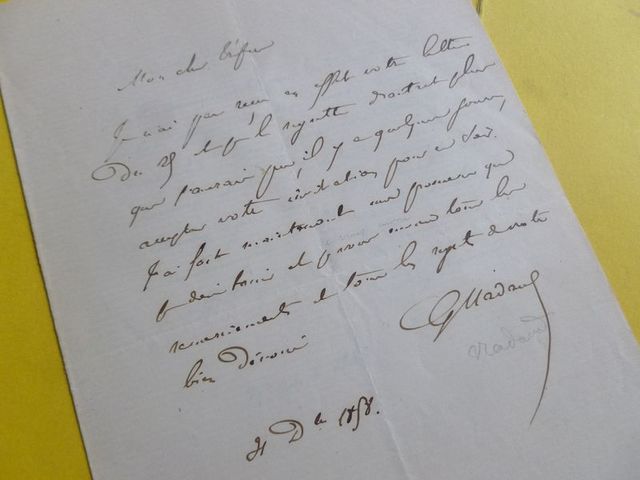 Mon cher
Je n'ai pas reçu en effet votre lettre
Du 25 et je le regrette d'autant plus
que j'aurais pu, il y a quelques jours,
accepter votre invitation pour ce soir.
J'ai fait maintenant une promesse que
je dois tenir et je vous envoie tous mes
remerciements et tous les regrets de votre
bien Dévoué
G Nadaud
Nadaud
31 Dbre 1858.